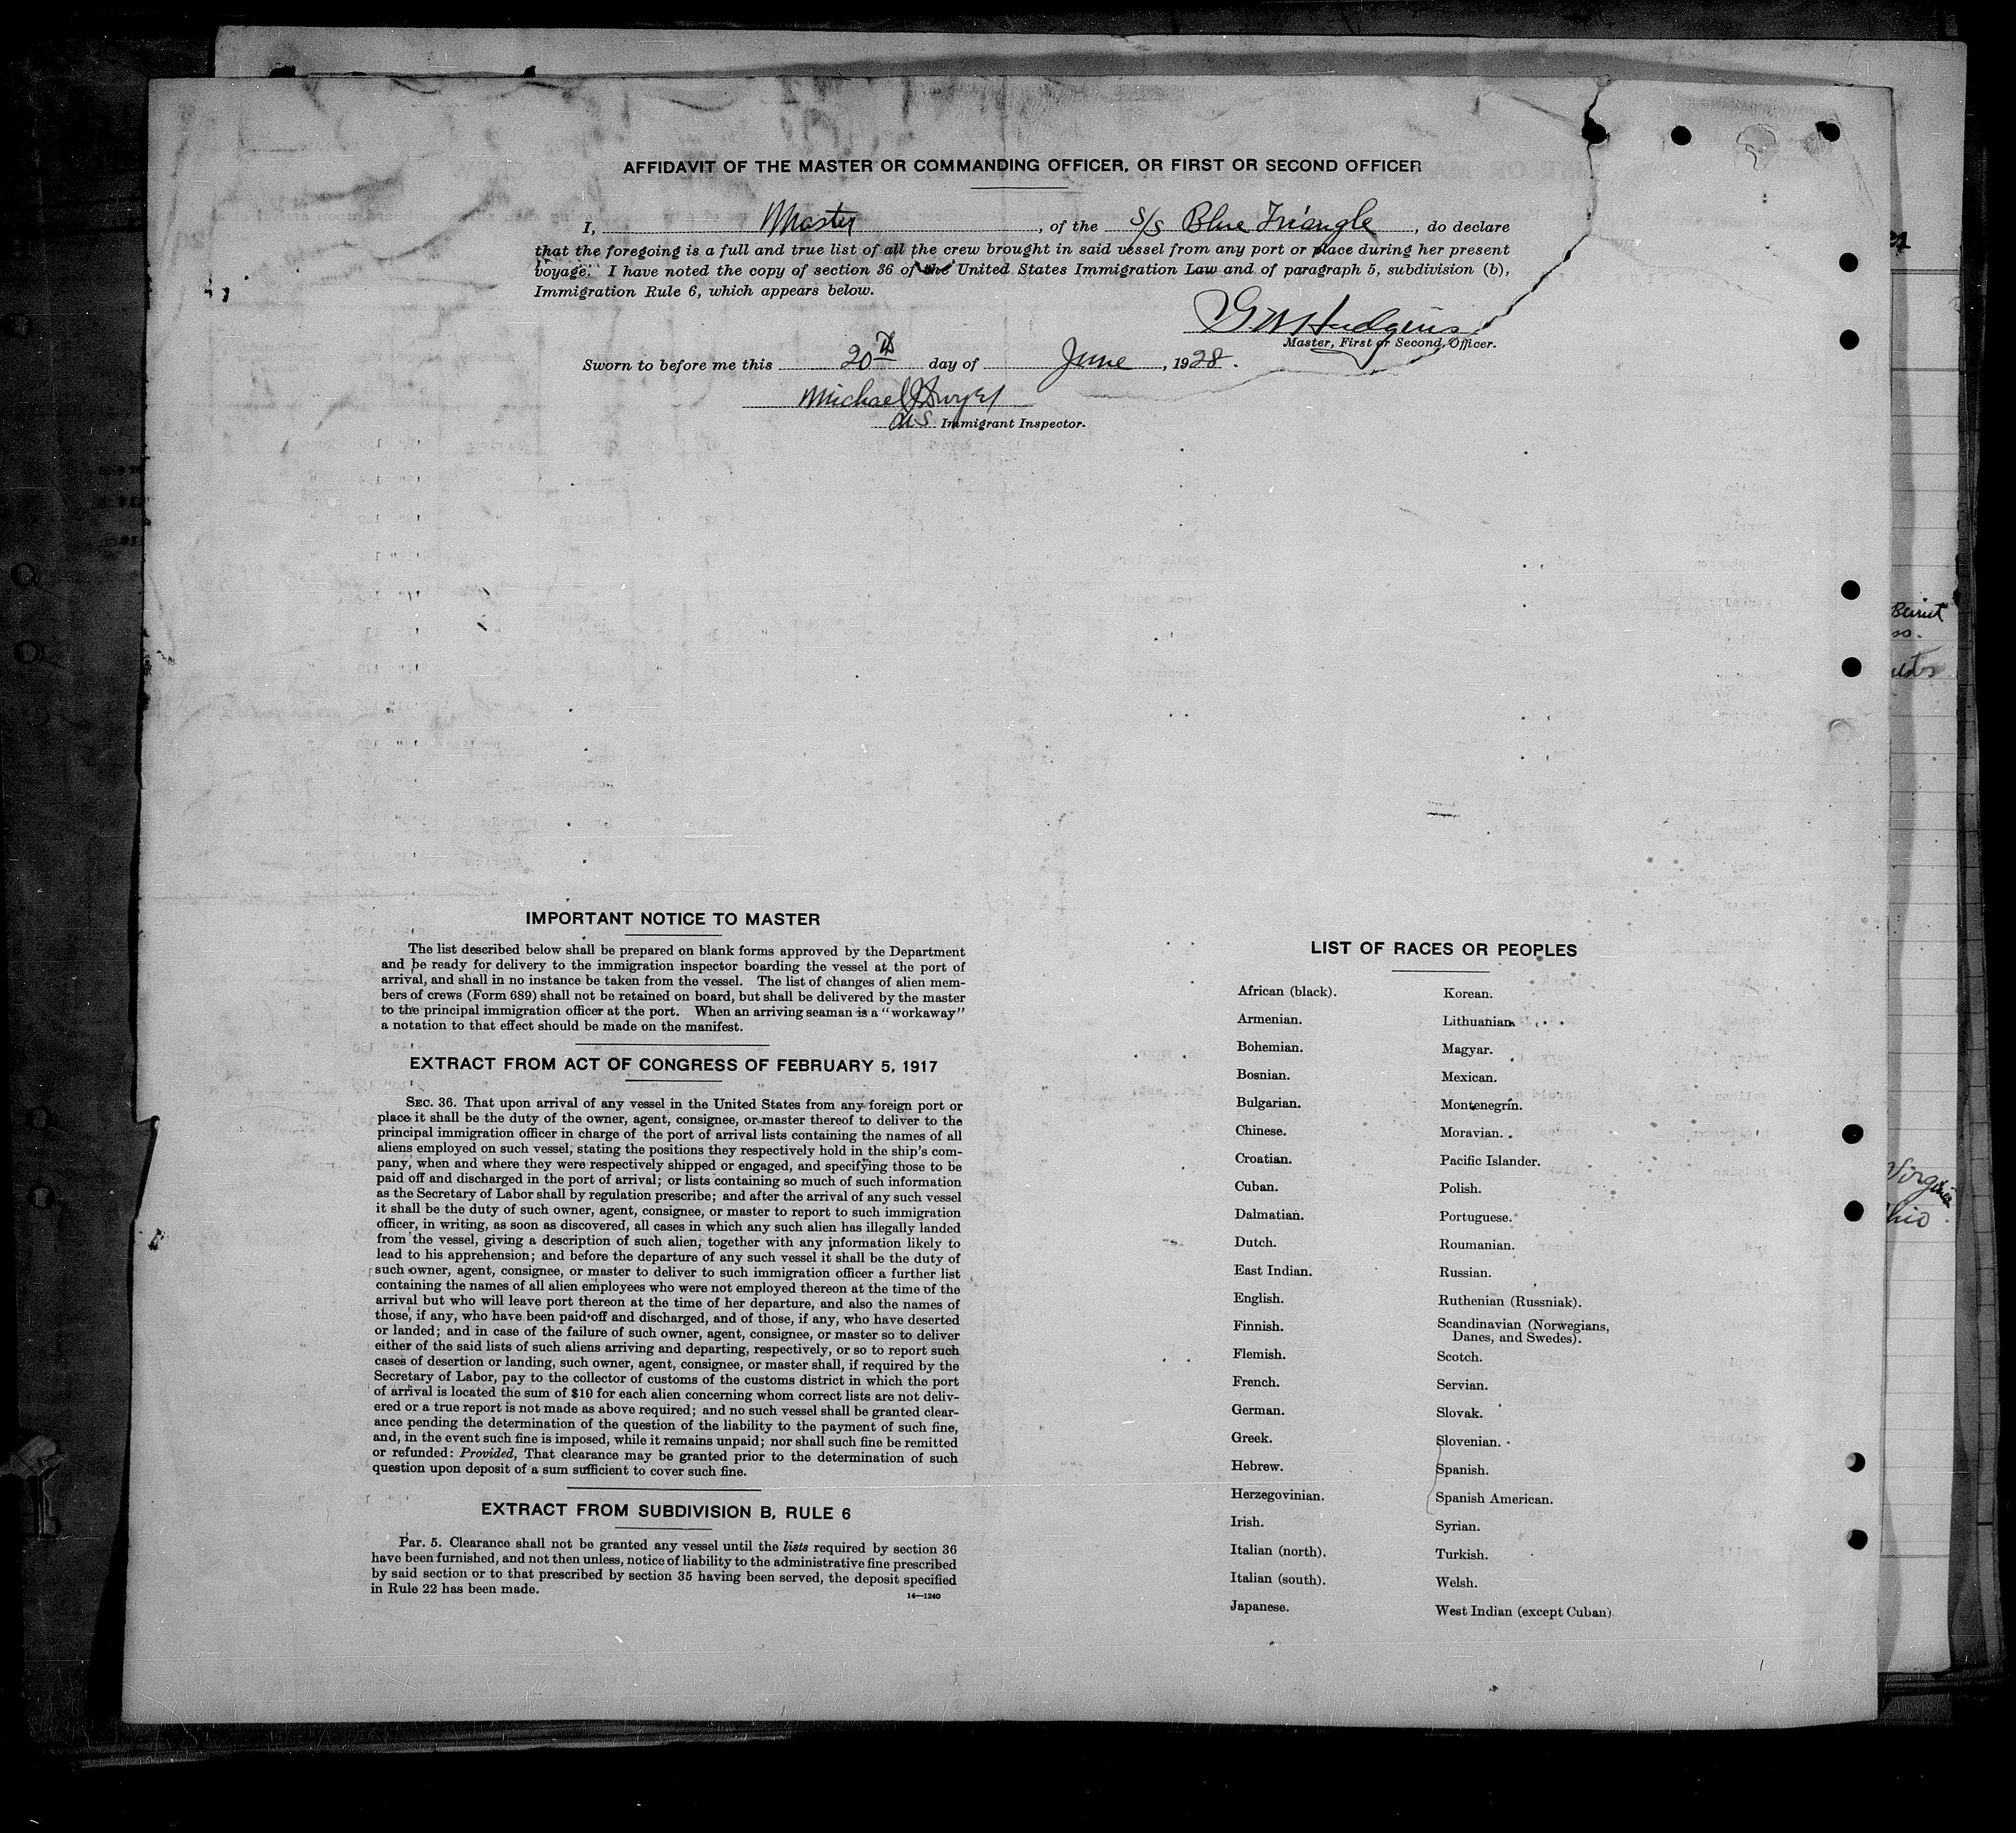 AFFIDAVIT OF THE MASTER OR COMMANDING OFFICER, OR FIRST OR SECOND OFFICER
I, Master, of the S/S Blue Triangle, do declare
that the foregoing is a full and true list of all the crew brought in said vessel from any port or place during her present
voyage. I have noted the copy of section 36 of the United States Immigration Law and of paragraph 5, subdivision (b),
Immigration Rule 6, which appears below.
G W Hudgins
Master, First or Second Officer.
Sworn to before me this 20th day of June, 1928.
Michael J Dwyer
U.S. Immigrant Inspector.
IMPORTANT NOTICE TO MASTER
The list described below shall be prepared on blank forms approved by the Department
and be ready for delivery to the immigration inspector boarding the vessel at the port of
arrival, and shall in no instance be taken from the vessel. The list of changes of alien mem-
bers of crews (Form 689) shall not be retained on board, but shall be delivered by the master
to the principal immigration officer at the port. When an arriving seaman is a "workaway"
a notation to that effect should be made on the manifest.
EXTRACT FROM ACT OF CONGRESS OF FEBRUARY 5, 1917
SEC. 36. That upon arrival of any vessel in the United States from any foreign port or
place it shall be the duty of the owner, agent, consignee, or master thereof to deliver to the
principal immigration officer in charge of the port of arrival lists containing the names of all
aliens employed on such vessel, stating the positions they respectively hold in the ship's com-
pany, when and where they were respectively shipped or engaged, and specifying those to be
paid off and discharged in the port of arrival; or lists containing so much of such information
as the Secretary of Labor shall by regulation prescribe; and after the arrival of any such vessel
it shall be the duty of such owner, agent, consignee, or master to report to such immigration
officer, in writing, as soon as discovered, all cases in which any such alien has illegally landed
from the vessel, giving a description of such alien, together with any information likely to
lead to his apprehension; and before the departure of any such vessel it shall be the duty of
such owner, agent, consignee, or master to deliver to such immigration officer a further list
containing the names of all alien employees who were not employed thereon at the time of the
arrival but who will leave port thereon at the time of her departure, and also the names of
those, if any, who have been paid off and discharged, and of those, if any, who have deserted
or landed; and in case of the failure of such owner, agent, consignee, or master so to deliver
either of the said lists of such aliens arriving and departing, respectively, or so to report such
cases of desertion or landing, such owner, agent, consignee, or master shall, if required by the
Secretary of Labor, pay to the collector of customs of the customs district in which the port
of arrival is located the sum of $10 for each alien concerning whom correct lists are not deliv-
ered or a true report is not made as above required; and no such vessel shall be granted clear-
ance pending the determination of the question of the liability to the payment of such fine,
and, in the event such fine is imposed, while it remains unpaid; nor shall such fine be remitted
or refunded: Provided, That clearance may be granted prior to the determination of such
question upon deposit of a sum sufficient to cover such fine.
EXTRACT FROM SUBDIVISION B, RULE 6
Par. 5. Clearance shall not be granted any vessel until the lists required by section 36
have been furnished, and not then unless, notice of liability to the administrative fine prescribed
by said section or to that prescribed by section 35 having been served, the deposit specified
in Rule 22 has been made.
14—1240
LIST OF RACES OR PEOPLES
African (black).
Armenian.
Bohemian.
Bosnian.
Bulgarian.
Chinese.
Croatian.
Cuban.
Dalmatian.
Dutch.
East Indian.
English.
Finnish.
Flemish.
French.
German.
Greek.
Hebrew.
Herzegovinian.
Irish.
Italian (north).
Italian (south).
Japanese.
Korean.
Lithuanian.
Magyar.
Mexican.
Montenegrin.
Moravian.
Pacific Islander.
Polish.
Portuguese.
Roumanian.
Russian.
Ruthenian (Russniak).
Scandinavian (Norwegians,
Danes, and Swedes).
Scotch.
Servian.
Slovak.
Slovenian.
Spanish.
Spanish American.
Syrian.
Turkish.
Welsh.
West Indian (except Cuban)
Beirut
Virginia